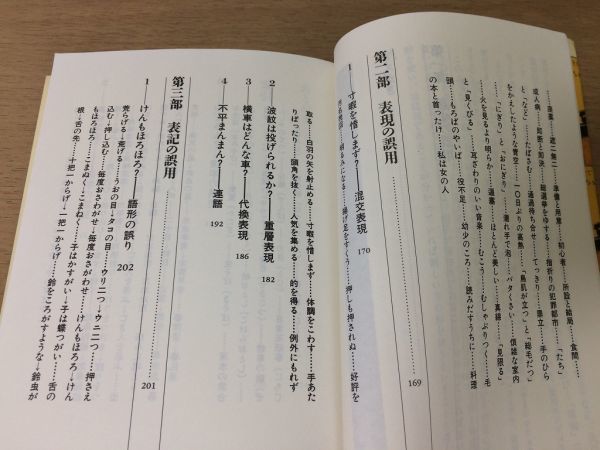 座薬……遮二無二……準備と用意……初心者……所詮と結局……食間……
成人病……処断と処決……総選挙をゆする……指折りの犯罪都市……「たち」
と「など」……たばさむ……通過待ち合せ……てっきり……県立……手のひら
をかえしたような青空……一〇日ぶりの高熱……「鳥肌が立つ」と「総毛だつ」
……「にぎり」と「おにぎり」……濡れ手で泡……バタくさい……煩雑な室内
……火を見るより明らか……ほとんど美しい……真緑……「見限る」
と「見くびる」……耳ざわりのいい音楽……むこう……むしゃぶりつく……毛
頭……もろばのやいば……役不足……幼少のころ……読みだすうちに……料理
の本と首ったけ……私は女の人
第二部 表現の誤用……169
1 寸暇を惜しまず?——混交表現……170
明るみになる……揚げ足をすくう……押しも押されぬ……好評を
取る……白羽の矢を射止める……寸暇を惜しまず……体調をこわす……手あた
りばったり……頭角を抜く……人気を集める……的を得る……例外にもれず
2 波紋は投げられるか?——重層表現……182
3 横車はどんな車?——代換表現……186
4 不平まんまん?——連語……192
第三部 表記の誤用……201
1 けんもほろほろ?——語形の誤り……202
荒らげる→荒げる……うおの目→タコの目……ウリ二つ→ウニ二つ……押さえ
込む→押し込む……毎度おさわがせ→毎度おさがわせ……けんもほろろ→けん
もほろほろ……こまぬく→こまねく……子はかすがい→子は蝶つがい……舌の
根→舌の先……十把一からげ→一把一からげ……鈴をころがすような→鈴虫が